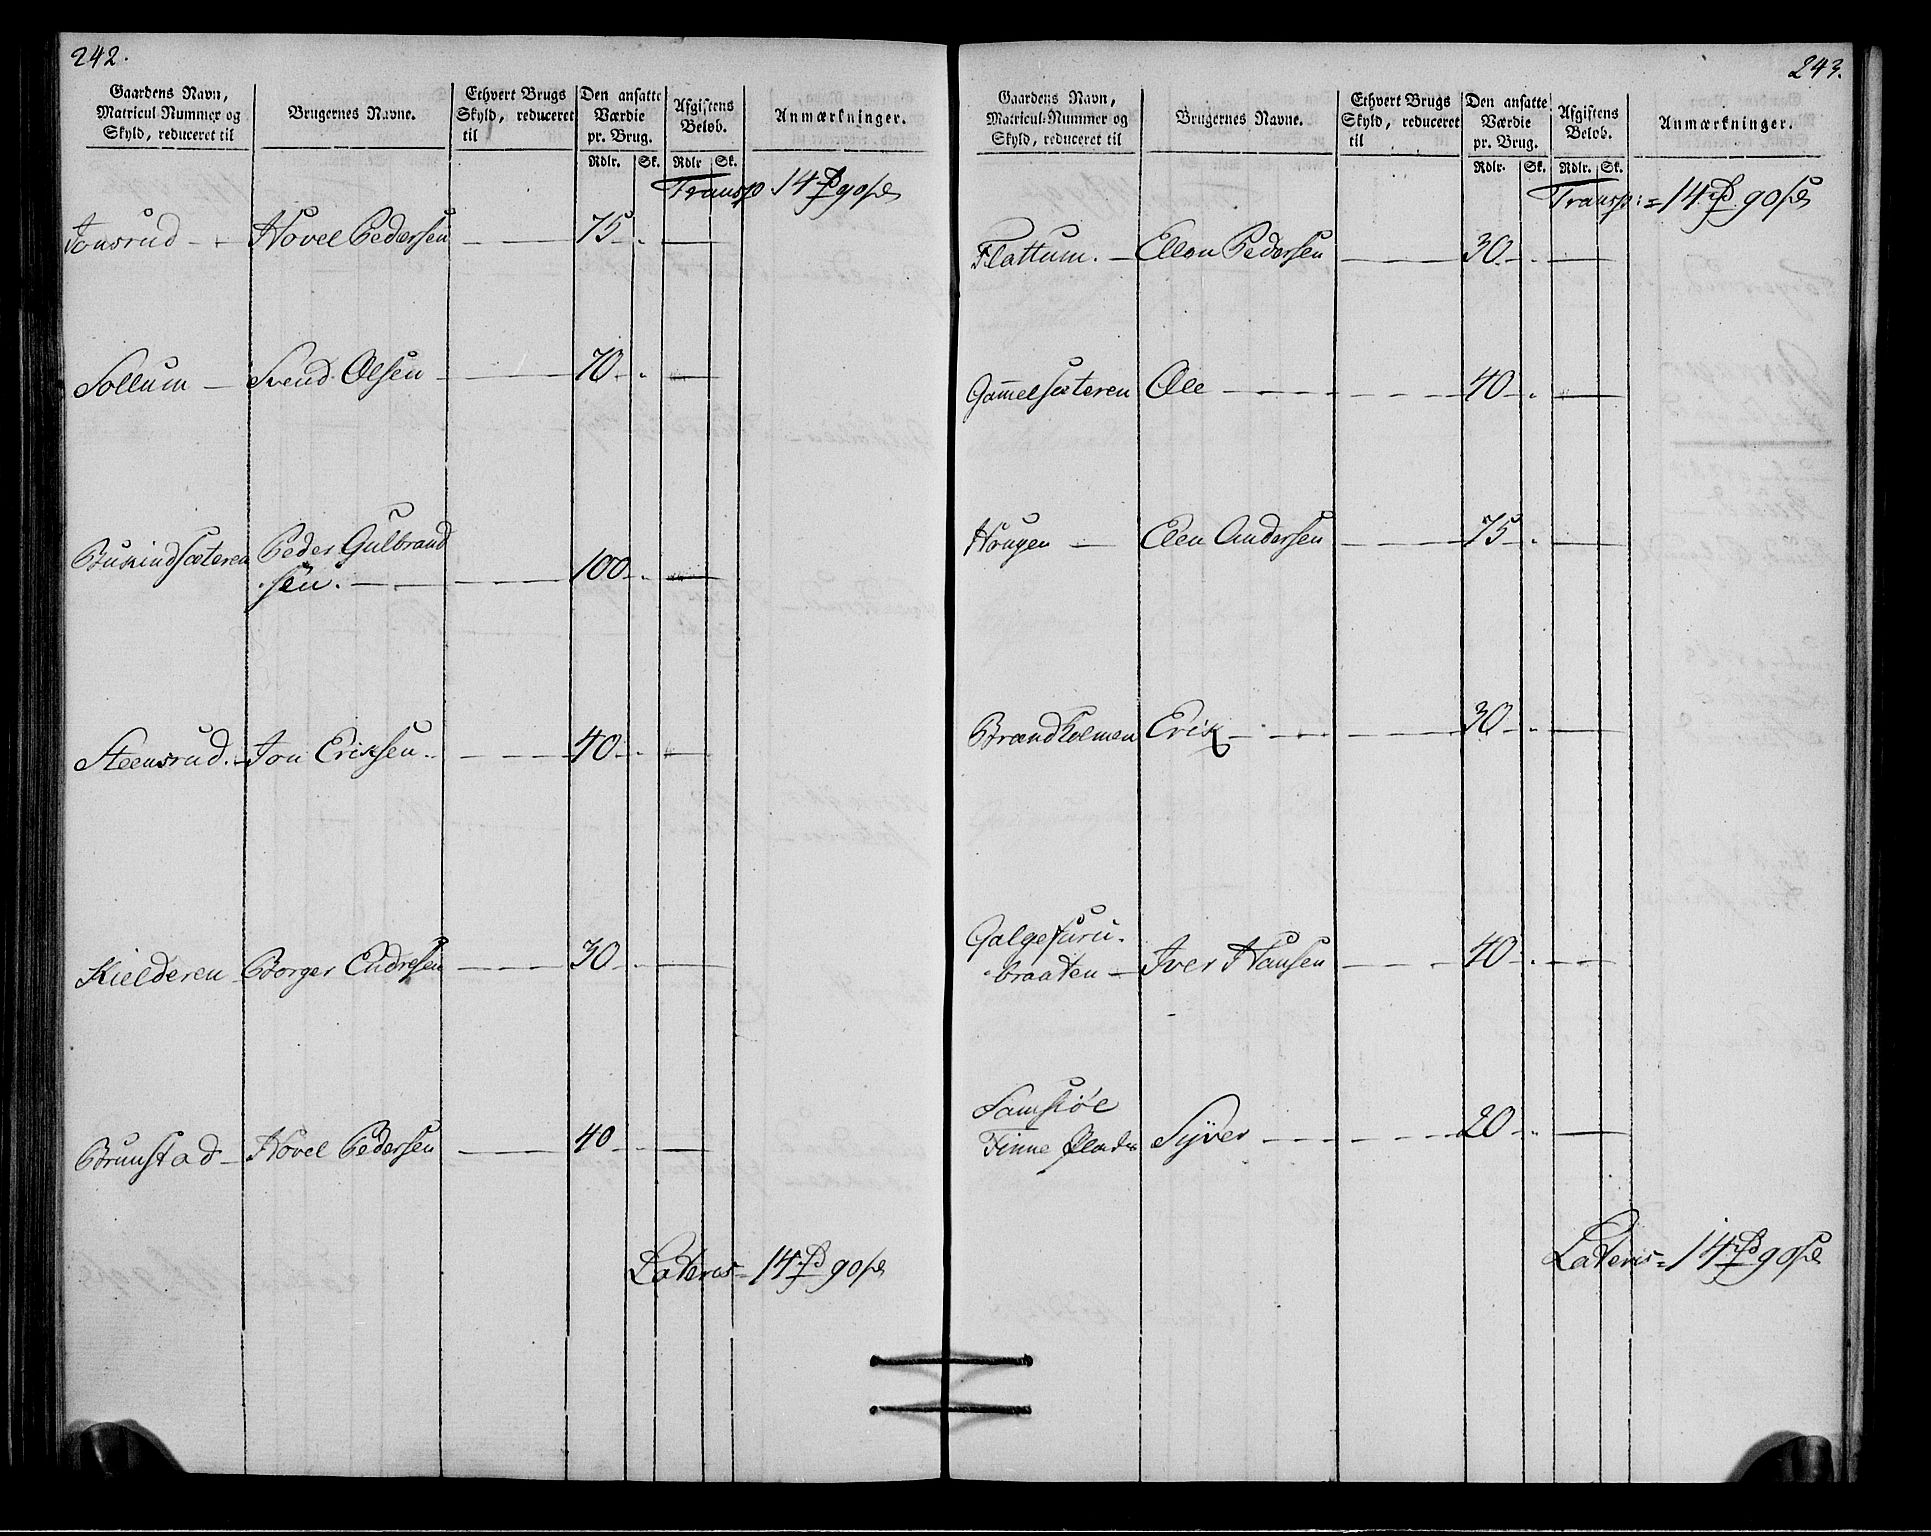 242.
Gaardens Navn, Matricul Nummer og Skyld, reduceret til
Brugernes Navne.
Ethvert Brugs Skyld, reduceret til
Den ansatte Værdie pr. Brug.
Afgiftens Beløb.
Anmærkninger.
Rdlr. Sk. Rdlr Sk.
Transp 14 rd 90 sk
Jonsrud - Hovel Pedersen - 75 - . -
Sollum - Svend Olsen - 70 - . -
Peder Gulbrand
Busundsæteren sen. - 100 - . -
Steensrud. - Jon Eriksen. - 40 - . -
Kielderen - Borger Endresen - 30 - . -
Brunstad - Hovel Pedersen - 40 - . -
Lateris = 14 rd 90 sk
243.
Gaardens Navn, Matricul-Nummer og Skyld, reduceret til
Brugernes Navne.
Ethvert Brugs Skyld, reduceret til
Den ansatte Værdie pr. Brug.
Afgiftens Beløb.
Anmærkninger.
Rdlr. Sk. Rdlr. Sk.
Transp: = 14 rd 90 sk
Flattum. - Ellen Pedersen - 30 - . -
Gam̄elsæteren Ole - 40 - . -
Hougen - Elen Andersen - 75 - . -
Brændholmen Erik - 30 - . -
Galgefuru-
braaten - Iver Hansen - 40 - . -
Samsiøe
Finne Plads Syver - 20 - . -
Lateris = 14 rd 90 sk